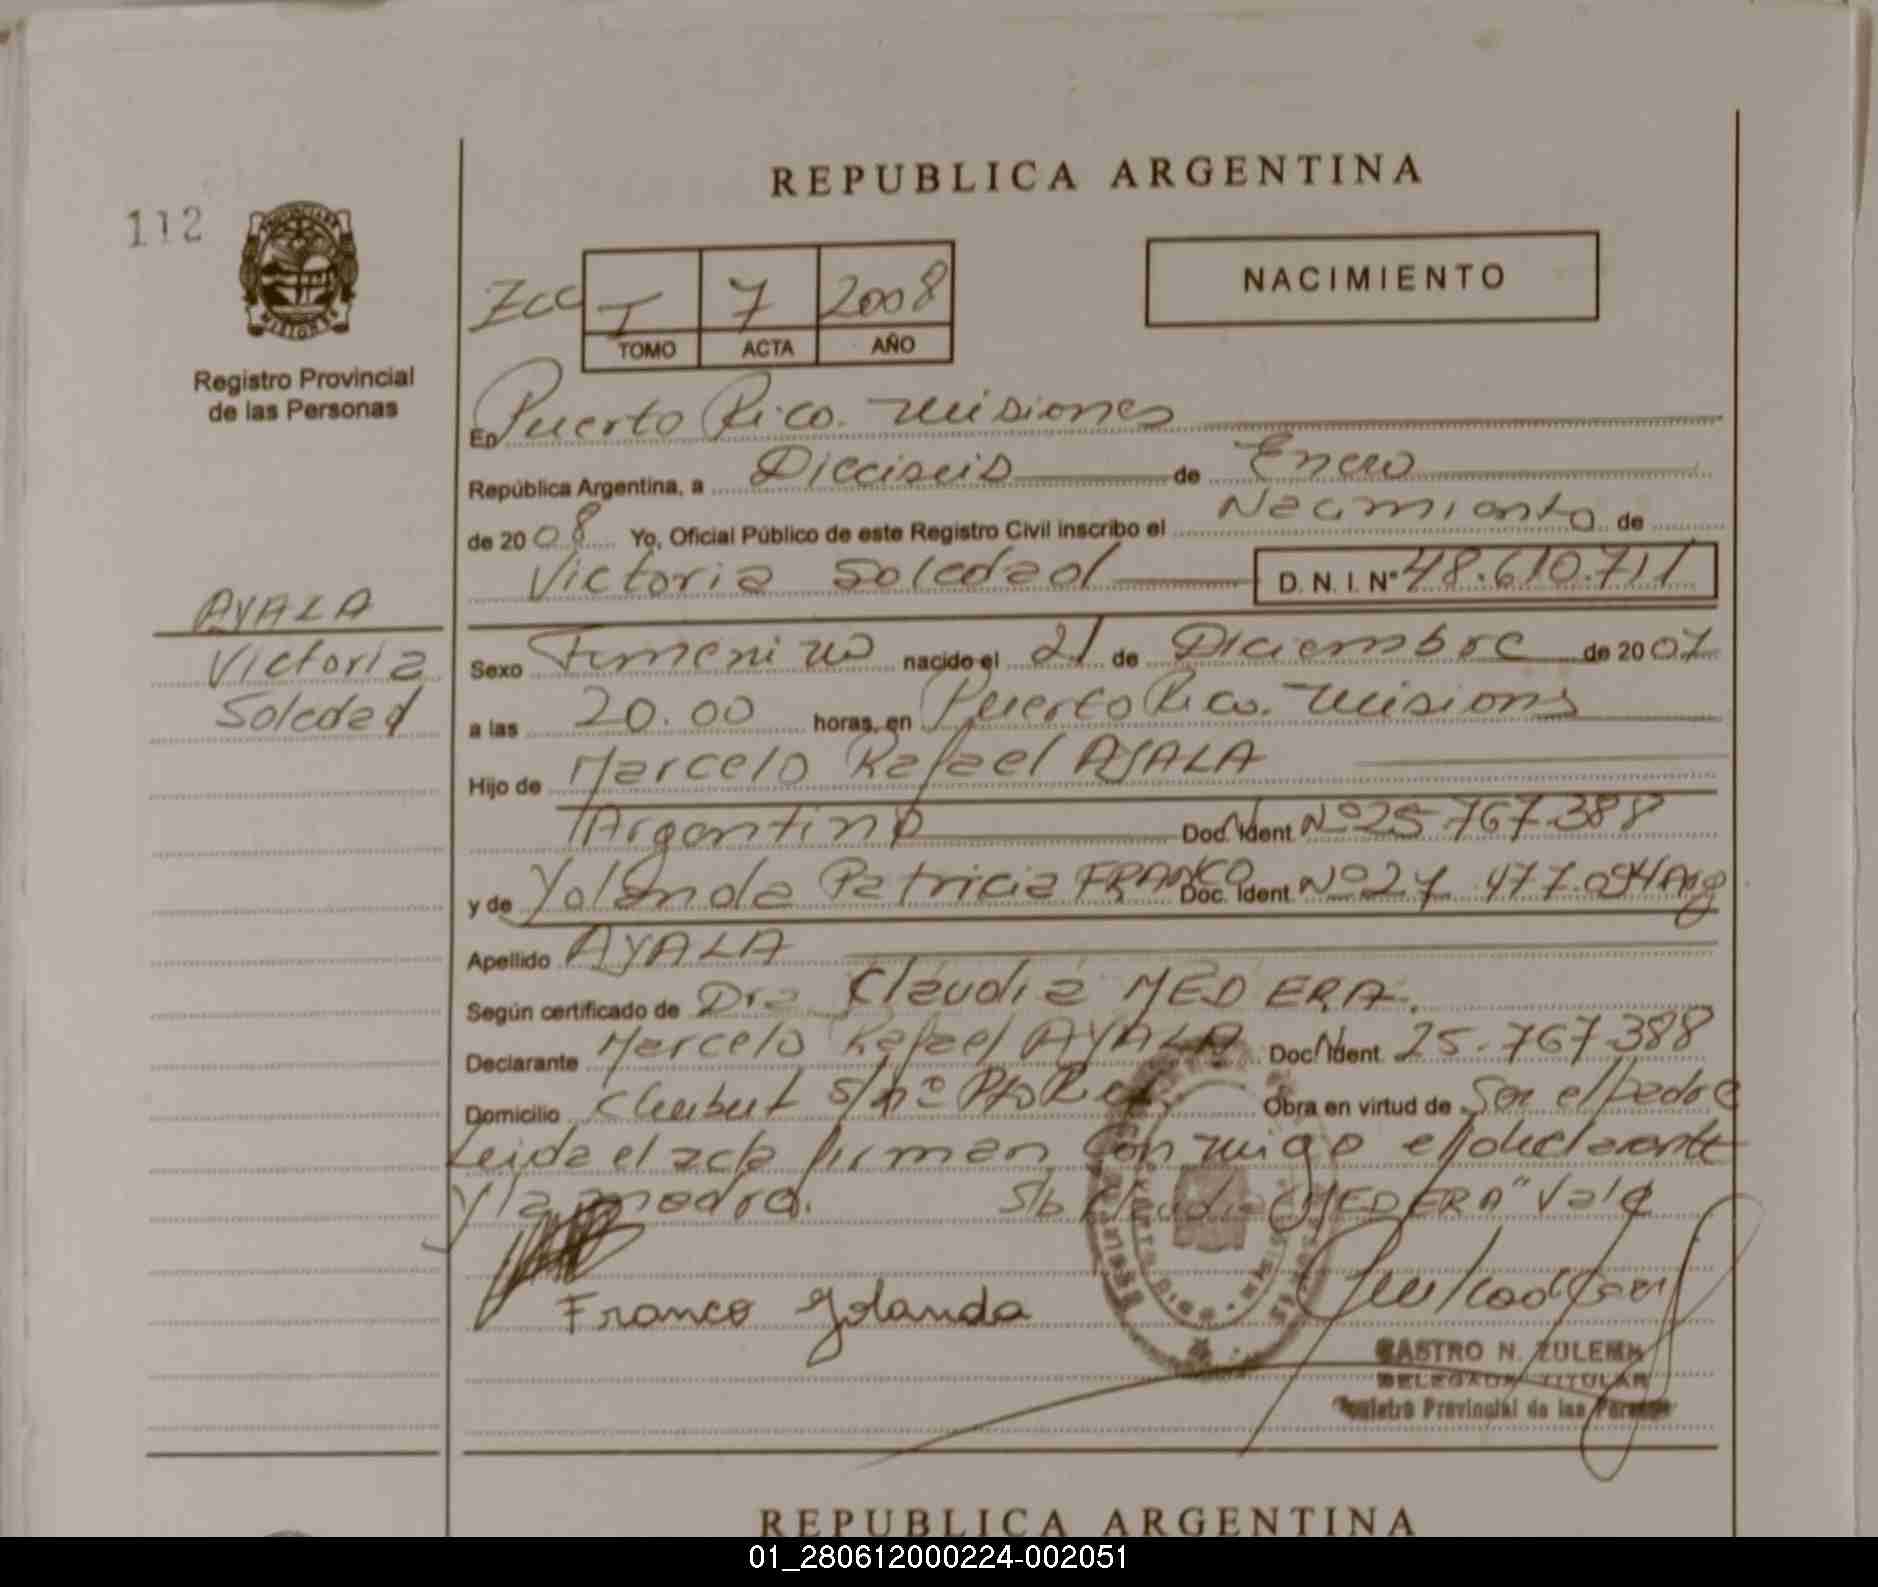 REPUBLICA ARGENTINA
112
NACIMIENTO
I 7 2008
TOMO ACTA AÑO
Registro Provincial
de las Personas
En Puerto Rico. Misiones
República Argentina, a Dieciseis de Enero
de 2008 Yo, Oficial Público de este Registro Civil inscribo el Nacimiento de
Victoria Soledad D. N. I. N° 48.610.711
AYALA
Victoria
Soledad
Sexo Femenino nacido el 21 de Diciembre de 2007
a las 20.00 horas, en Puerto Rico. Misiones
Hijo de Marcelo Rafael AYALA
Argentino Doc. Ident. Nº 25.767.388
y de Yolanda Patricia FRANCO Doc. Ident. Nº 27.477.094 Arg
Apellido AYALA
Según certificado de Dra Claudia MEDERA.
Declarante Marcelo Rafael AYALA Doc. Ident. 25.767.388
Domicilio s/nº Pto Rico Obra en virtud de Ser el padre
Leida el acta firman conmigo el declarante
y la madre. S/b Claudia "MEDERA" Vale
Franco Yolanda
CASTRO N. ZULEMA
DELEGADA TITULAR
Registro Provincial de las Personas
REPUBLICA ARGENTINA
01_280612000224-002051